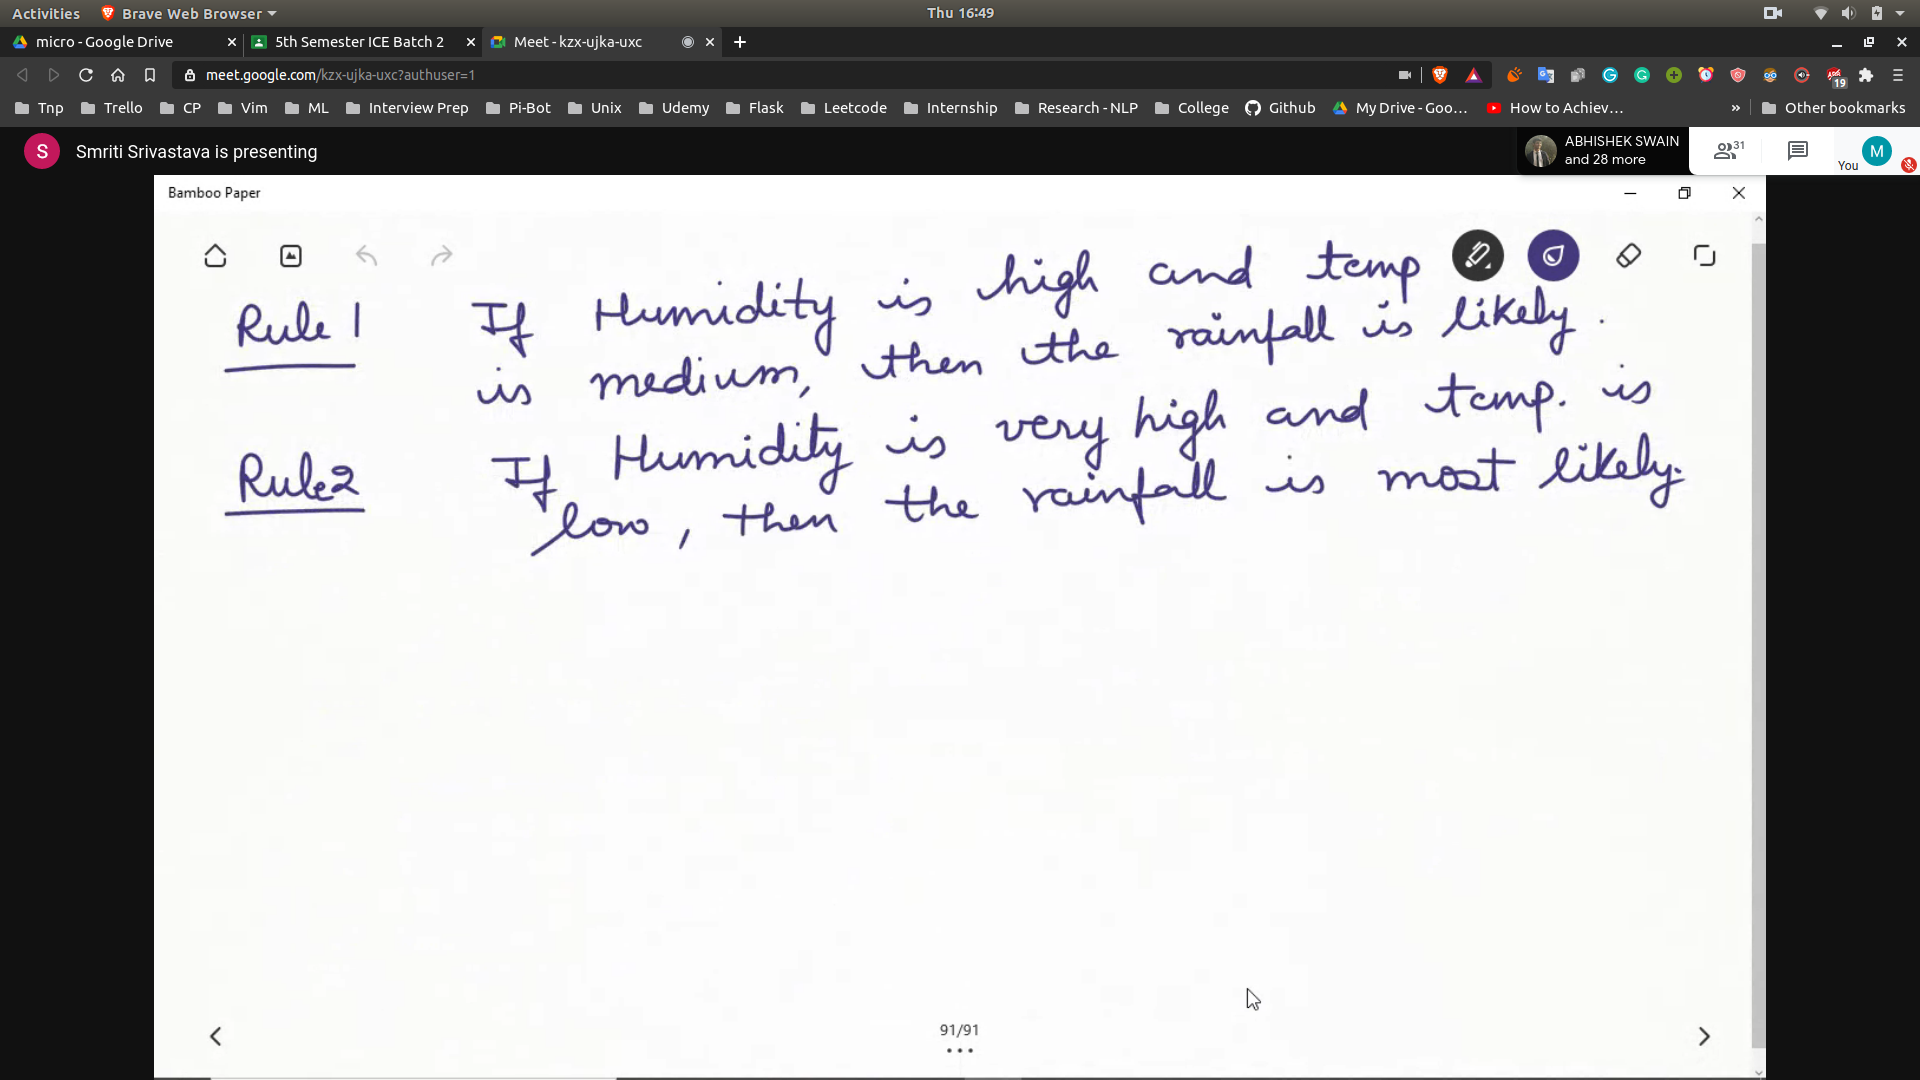 Activities Brave Web Browser Thu 16:49
micro - Google Drive 5th Semester ICE Batch 2 Meet - kzx-ujka-uxc
meet.google.com/kzx-ujka-uxc?authuser=1 19
Tnp Trello CP Vim ML Interview Prep Pi-Bot Unix Udemy Flask Leetcode Internship Research - NLP College Github My Drive - Goo… How to Achiev… » Other bookmarks
S Smriti Srivastava is presenting
ABHISHEK SWAIN
and 28 more
31
You M
Bamboo Paper
Rule 1 If Humidity is high and temp
is medium, then the rainfall is likely.
Rule 2 If Humidity is very high and temp. is
low, then the rainfall is most likely.
91/91